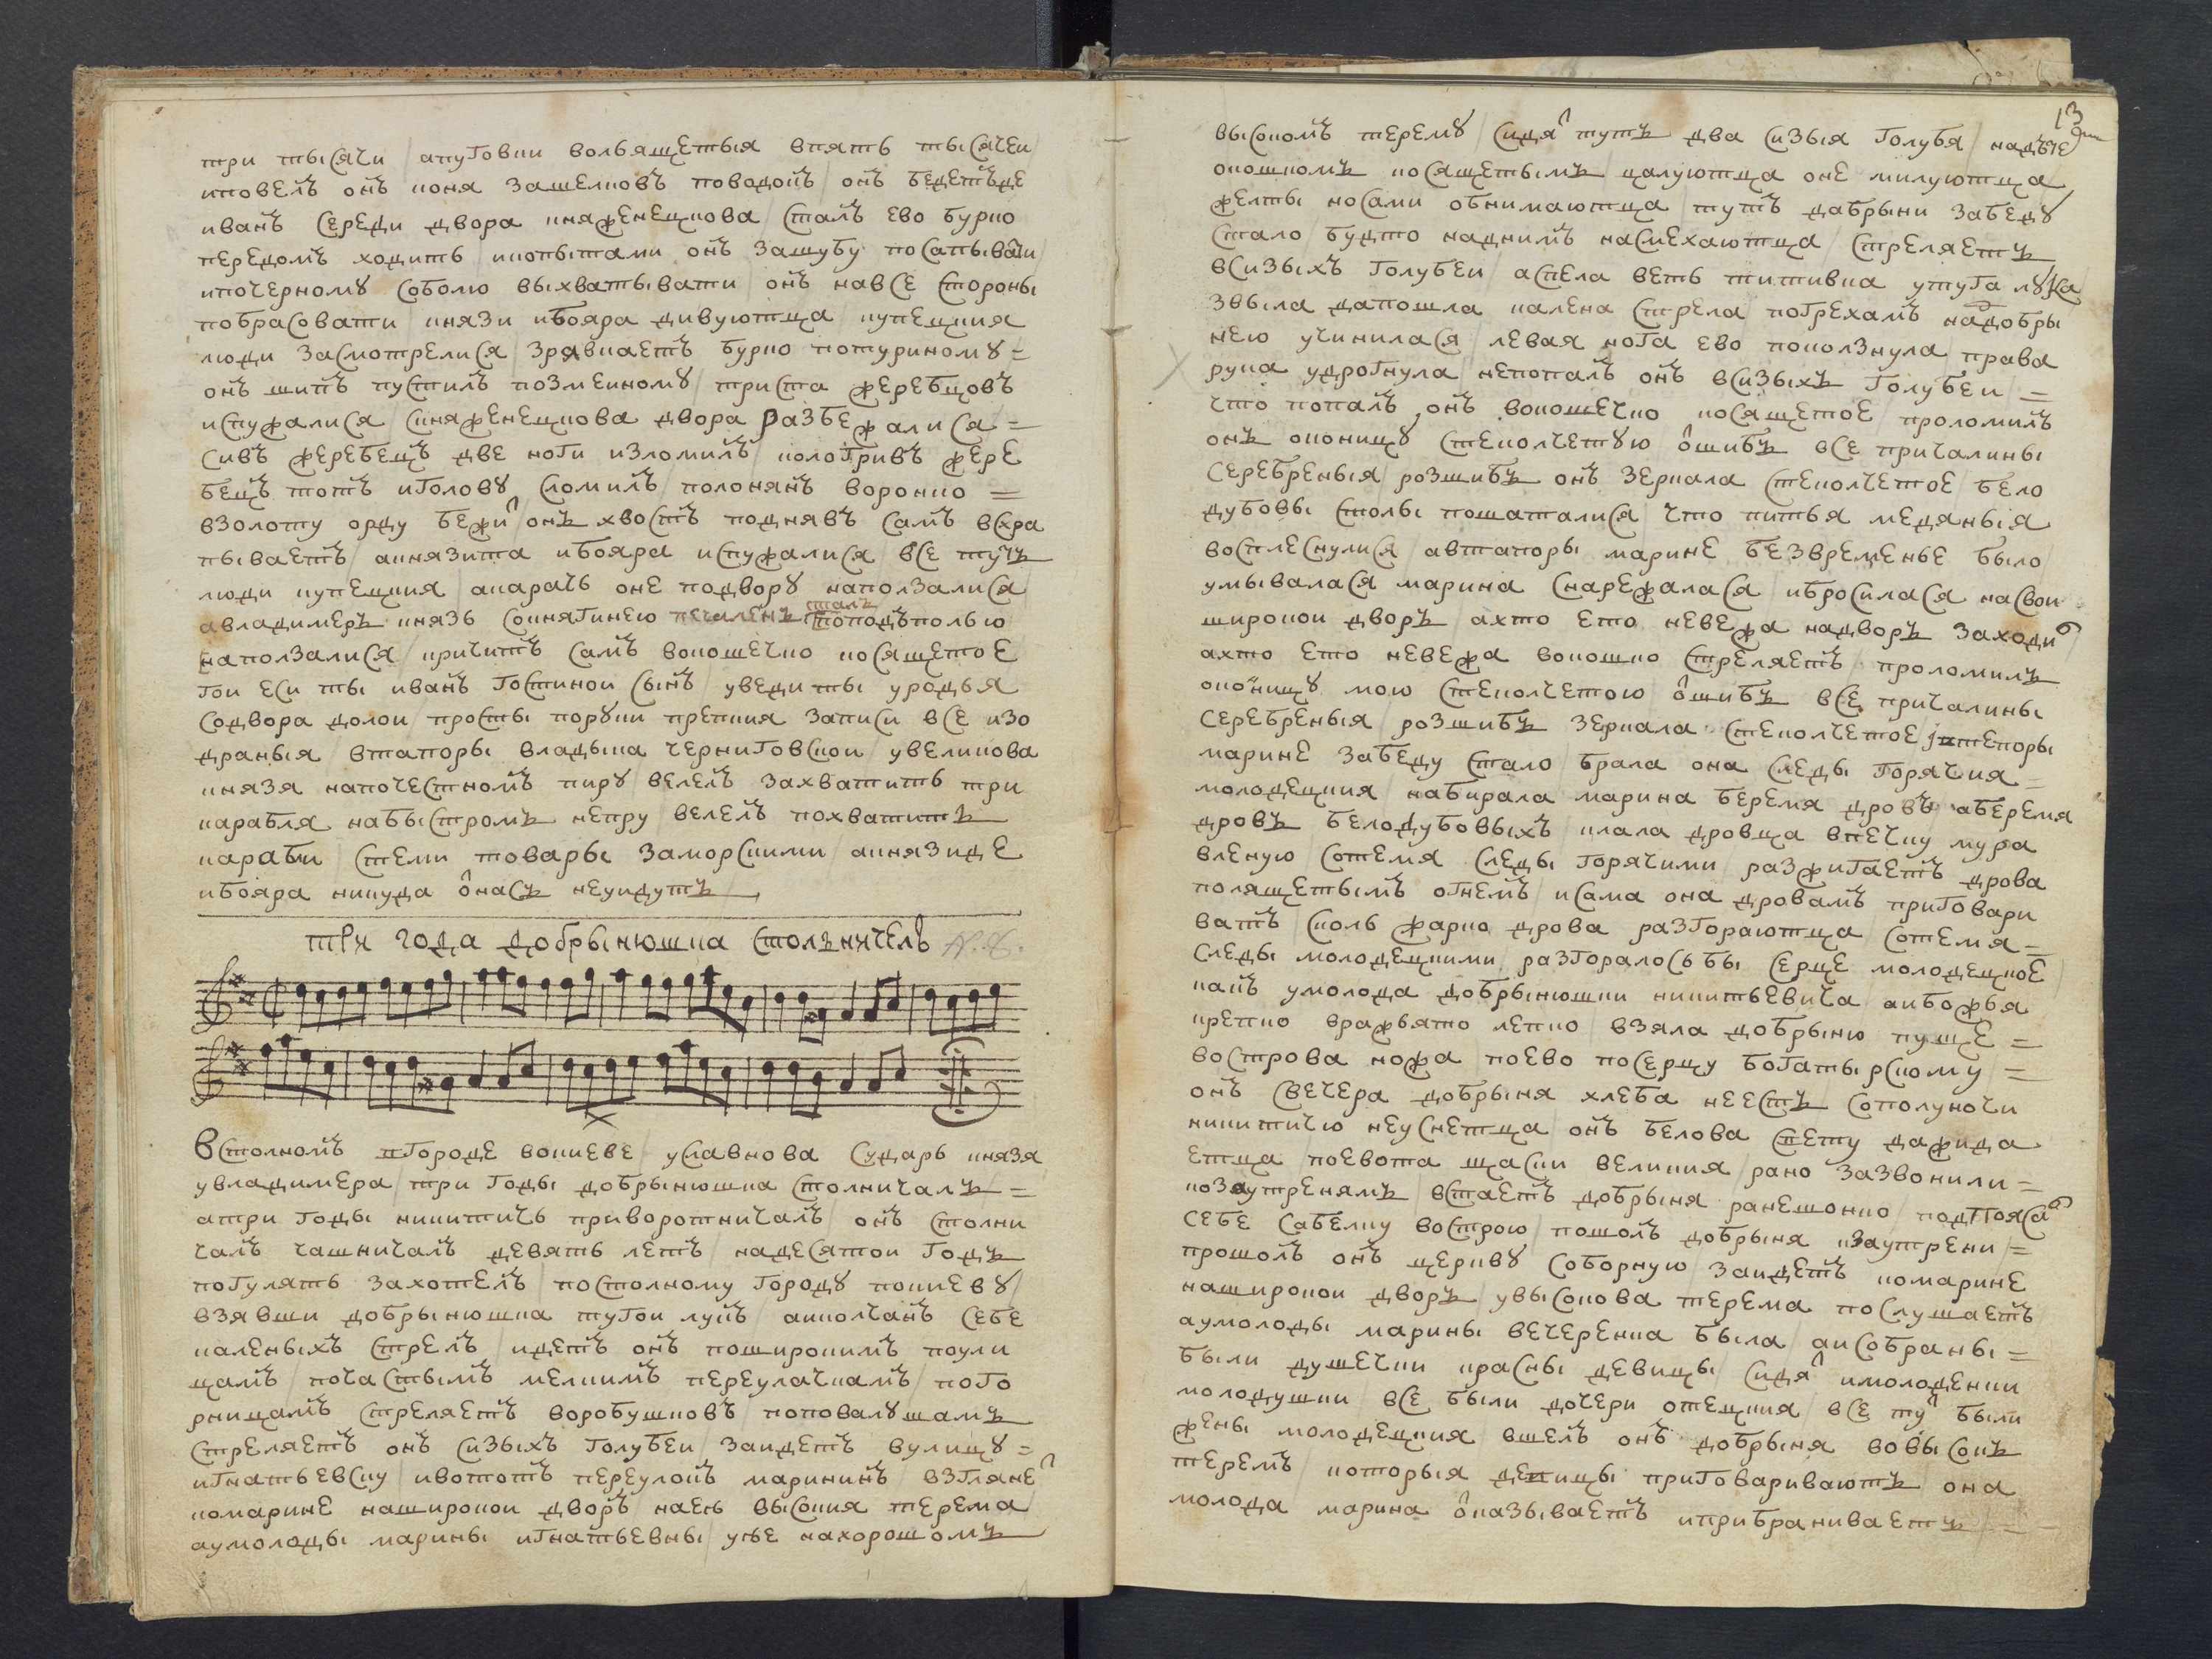 три тысячи / а пуговки вольящетыя в пять тысячеи /
и повелъ онъ коня за шелковъ поводокъ / онъ ведетъ де
иванъ середи двора княженецкова / сталъ ево бурко
передомъ ходить / и копытами онъ за шубу посапывати /
и по черному соболю выхватывати / онъ на все стороны
побрасовати / князи и бояра дивуютца / купецкия
люди засмотрелися / зрявкаетъ бурко по туриному =
онъ шипъ пустилъ по змеиному / триста жеребцовъ
испужалися / с княженецкова двора разбежалися =
сивъ жеребецъ две ноги изломилъ / кологривъ жере
бецъ тотъ и голову сломилъ / полонянъ воронко =
в золоту орду бежи онъ хвостъ поднявъ самъ всхра
пываетъ / а князи та и бояра испужалися / все тутъ
люди купецкия / акарачь оне по двору наползалися
а владимеръ князь со княгинею печаленъ сталъ по подполью
наползалися / кричитъ самъ в окошечко косящетое
гои еси ты иванъ гостинои сынъ / уведи ты уродья
со двора долои / просты поруки крепкия записи все изо
драныя / втапоры владыка черниговскои / у великова
князя на почестномъ пиру велелъ захватить три
карабля на быстромъ непру велелъ похватить
карабли / с теми товары заморскими / а князи де
и бояра никуда от насъ не уидутъ
три года добрынюшка столничелъ N. 8.
В столномъ городе во киеве / у славнова сударь князя
у владимера / три годы добрынюшка столничалъ =
а три годы никитичь приворотничалъ / онъ столни
чалъ чашничалъ девять летъ / на десятои годъ
погулять захотелъ / по столному городу по киеву /
взявши добрынюшка тугои лукъ / а и колчанъ себе
каленыхъ стрелъ / идетъ онъ по широкимъ по ули
цамъ / по частымъ мелкимъ переулачкамъ / по го
рницамъ стреляетъ воробушковъ / по повалушамъ
стреляетъ онъ сизыхъ голубеи / заидетъ в улицу =
игнатьевску / и во тотъ переулокъ маринкинъ / взгляне
ко марине на широкои дворъ на ее высокия терема
а у молоды марины игнатьевны у ее на хорошомъ
13
высокомъ терему / сидя тутъ два сизыя голубя / надъ те
окошкомъ косящетымъ целуютца оне милуютца
желты носами обнимаютца / тутъ добрыни за беду
стало / будто надъ нимъ насмехаютца / стреляетъ
в сизыхъ голубеи / а спела веть титивка у туга лука
звыла да пошла калена стрела / по грехамъ надъ добры
нею учинилася / левая нога ево поколзнула права
рука удрогнула / не попалъ онъ в сизыхъ голубеи =
что попалъ онъ в окошечко косящетое / проломилъ
онъ оконницу стеколчетую / отшибъ все причалины
серебреныя / розшибъ онъ зеркала стеколчетое / бело
дубовы столы пошаталися / что питья медяныя
восплеснулися / а втапоры марине безвременье было
умывалася марина / снарежалася / и бросилася на свои
широкои дворъ / а хто ето невежа на дворъ заходи
а хто ето невежа в окошко стреляетъ / проломилъ
оконницу мою стеколчетою / отшибъ все причалины
серебреныя / розшибъ зеркала стеколчетое / и тепоры
марине за беду стало / брала она следы горячия =
молодецкия / набирала марина беремя дровъ / а беремя
дровъ белодубовыхъ / клала дровца в печку мура
вленую / со теми следы горячими / разжигаетъ дрова
полящетымъ огнемъ / и сама она дровамъ приговари
ватъ / сколь жарко дрова разгораютца / со теми =
следы молодецкими / разгоралось бы серце молодецкое
какъ у молода добрынюшки никитьевича / а и божья
крепко вражья то лепко / взяла добрыню пуще =
вострова ножа по ево по серцу богатырскому =
онъ с вечера добрыня хлеба не естъ / со полуночи
никитичю не уснетца / онъ белова свету дажида
етца / по ево то щаски великия / рано зазвонили =
ко заутренямъ / встаетъ добрыня ранешонко / подпоясалъ
себе сабелку вострою / пошолъ добрыня к заутрени =
прошолъ онъ церкву соборную / заидетъ ко марине
на широкои дворъ / у высокова терема послушаетъ
а у молоды марины вечеренка была / а и собраны =
были душечки красны девицы / сидя и молоденки
молодушки / все были дочери отецкия / все ту были
жены молодецкия / вшелъ онъ добрыня во высокъ
теремъ / которыя девицы приговариваютъ / она
молода марина отказываетъ и прибраниваетъ =